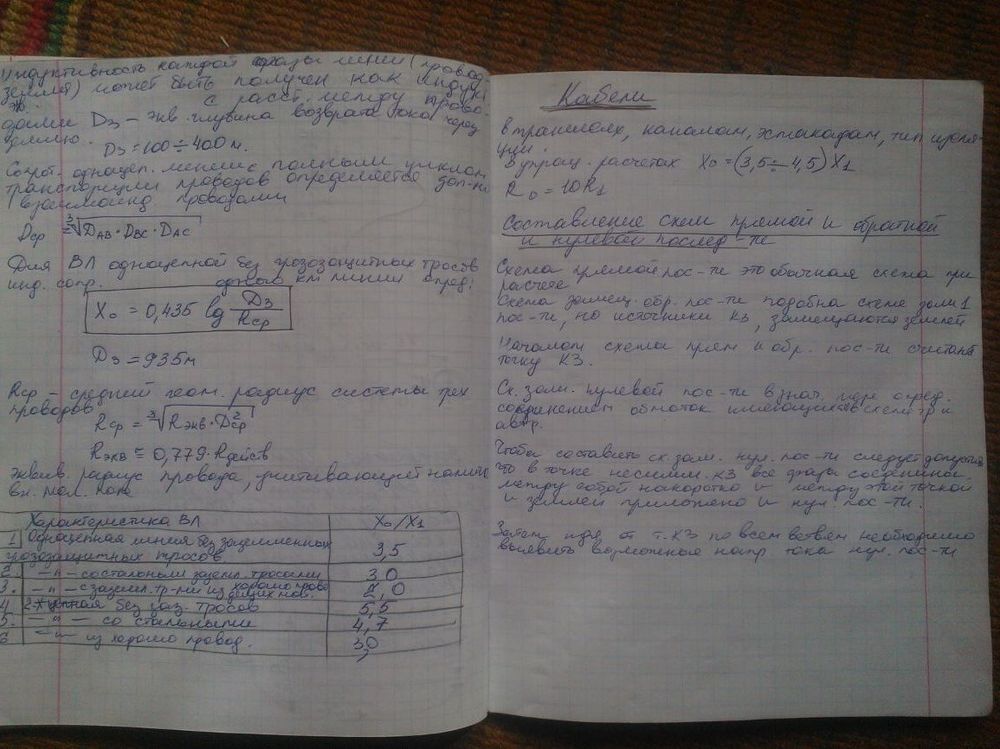 Индуктивность каждой фазы линии (провод-
земля) может быть получен как индук
с расст. между прово-
дами Dз – экв. глубина возврата тока через
землю.
Dз = 100 ÷ 400 м.
Сопрот. одноцеп. линии с полным циклом
транспозиции проводов определяется доп-но
взаимоинд. проводами
Dср = ∛(DАВ · DВС · DАС)
Для ВЛ одноцепной без грозозащитных тросов
инд. сопр. одного км линии опред:
X₀ = 0,435 lg Dз/Rср
Dз = 935 м
Rср – средний геом. радиус системы трех
проводов
Rср = ∛(Rэкв · D²ср)
Rэкв = 0,779 · Rдейств
эквив. радиус провода, учитывающий наличие
вн. маг. поля
Характеристика ВЛ X₀/X₁
1 Одноцепная линия без заземленных
грозозащитных тросов. 3,5
2. –"– со стальными зазем. тросами 3,0
3. –"– с зазем. тр-ми из хорошо прово
дящих мат. 2,0
4 2х цепная без заз. тросов 5,5
5. –"– со стальными 4,7
6 –"– из хорошо провод. 3,0
Кабели
В траншеях, каналам, эстакадам, тип изоля-
ции.
В упрощ. расчетах X₀ = (3,5 ÷ 4,5) X₁
R₀ = 10R₁
Составление схем прямой и обратной
и нулевой послед-ти
Схема прямой пос-ти это обычная схема при
расчете
Схема замещ. обр. пос-ти подобна схеме зам 1
пос-ти, но источники КЗ, замещаются землей
Началом схемы прям и обр. пос-ти считают
точку КЗ.
Сх. зам. нулевой пос-ти в знач. мере опред.
соединением обмоток имеющихся в схеме тр и
автр.
Чтобы составить сх. зам. нул. пос-ти следует допустить
что в точке несимм. КЗ все фазы соединены
между собой накоротко и между этой точкой
и землей приложено U нул. пос-ти.
Затем идя от т. КЗ по всем ветвям необходимо
выявить возможные напр тока нул. пос-ти